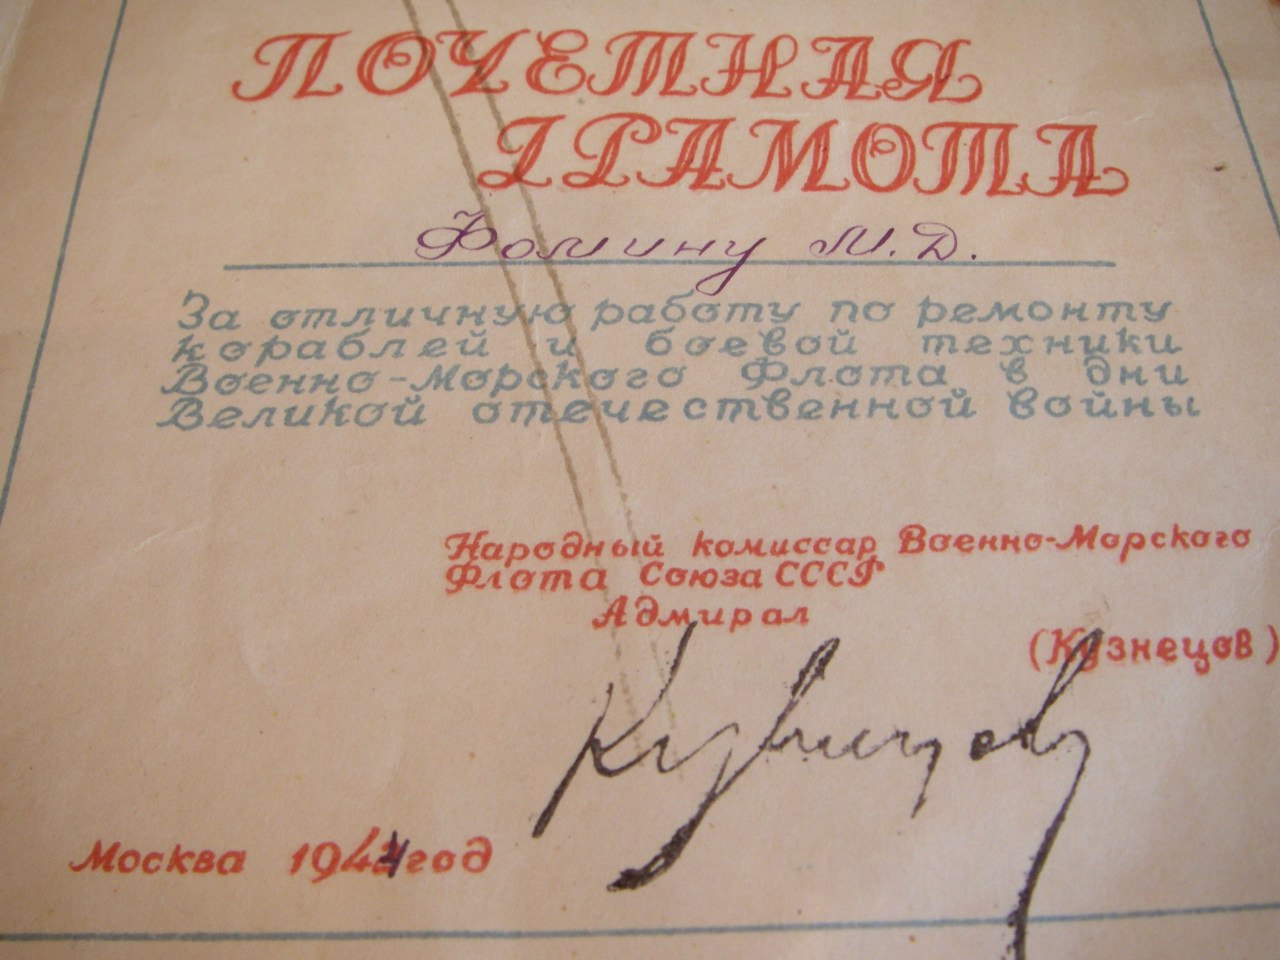 ПОЧЕТНАЯ
ГРАМОТА
Фомину М.Д.
За отличную работу по ремонту
кораблей и боевой техники
Военно-Морского Флота в дни
Великой отечественной войны
Народный комиссар Военно-Морского
Флота Союза СССР
Адмирал
(Кузнецов)
Кузнецов
Москва 1944 год